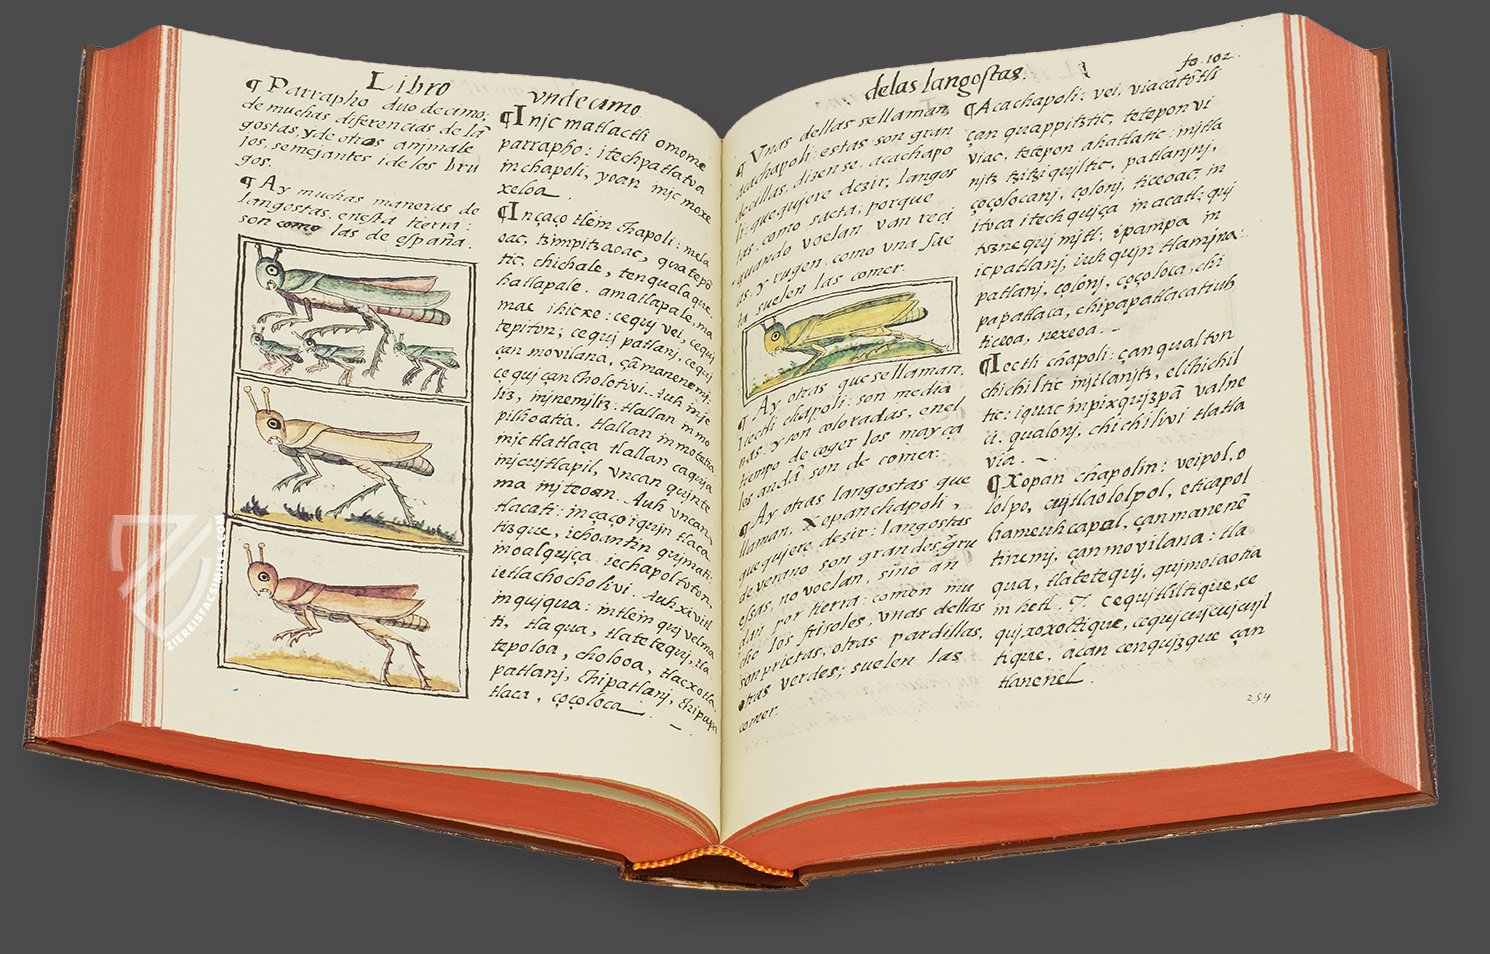 Libro
vndecimo
¶ Parrapho duo decimo;
de muchas diferencias de lã
gostas, y de otros anjmale
jos, semejantes i de los bru
gos.
¶ Ay muchas maneras de
langostas, en esta tierra:
son como las de españa.
¶ Injc matlactli omome
parrapho: itechpatlatoa
in chapoli, yoan injc moxe
xeloa.
¶ In çaço tlein chapoli: mela
oac, tzimpitzaoac, quatepõ
tic, chichale, tenqualaque,
hatlapale, amatlapale, ma
mae ihicxe: cequj vei, cequj
tepiton; cequj patlanj, cequj
çan movilana, çã manenemj:
cequj çan cholotivi. Auh inje
liz, injnemjliz: tlallan mmo
pilhoatia, tlallan in motetia
injc tlatlaça tlallan caquja
injcujtlapil, vncan qujnte
ma injteoan. Auh vncan,
tlacati: in çaço iqujn tlaca
tizque, ichoantin qujmati:
in oalqujça, iechapoltoton,
ie tlachocholivi. Auh xivitl
in qujqua: intlein quj velma
ti, tlaqua, tlatetequj, tla
tepoloa, cholooa, tlacxotla
patlanj, chipatlanj, chipapa
tlaca, çoçoloca.
de las langostas.
fo. 102.
¶ Vnas dellas se llaman
acachapoli: estas son gran
decillas, dizen se, acachapo
li: que qujere dezir, langos
tas, como saeta, porque
quando voelan van reci
as, y rugen, como vna sae
ta suelen las comer.
¶ Ay otras que se llaman,
iectli chapoli: son media
nas, y son coloradas, en el
tiempo de coger los mayça
les andã, son de comer:
¶ Ay otras langostas que
llaman, xopanchapoli,
que qujere dezir: langostas
de verano son grandes, y gru
essas, no voelan, sino an
dan por tierra: comen mu
cho los frisoles, vnas dellas
son prietas, otras pardillas,
otras verdes; suelen las
comer.
¶ Acachapoli: vei, viacatõtli
çan quappitztic, tetepon vi
viac, tetepon ahatlatic: injtla
njtz tzitziquiltic, patlanjnj,
çoçolocanj, çolonj, ticeoac: in
itoca itech qujça in acatl: quj
toznequj mjtl: ipampa in
icpatlanj, iuh qujn tlamjna:
patlanj, çolonj, çoçoloca, chi
papatlaca, chipapatlacatiuh
ticeoa, nexeoa.
¶ Iectli chapoli: çan qualton
chichiltic injtlanjtz, elchichil
tic: iquac in pixqujzpã valne
ci, qualonj, chichilivi tlatla
via.
¶ Xopan chapolin: veipol, o
lolpo, cujtlaololpol, eticapol
hameuhcapal, çan manenẽ
tinemj, çan movilana: tla
qua, tlatetequj, qujmoiaotia
in hetl. J. cequj tliltique, ce
quj xoxoctique, cequj cujcujl
tique, acan cenqujzque çan
tlanenel.
254
ZIEREISFACSIMILES.COM